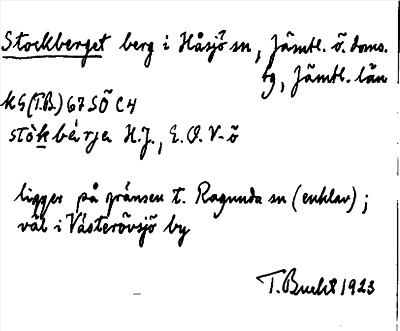 Stockberget berg i Håsjö sn, Jämtl. ö. doms.
tg, Jämtl. län
KG (T.B.) 67 SÖ C4
stòkbárja H.J., E.O. V-ö
ligger på gränsen t. Ragunda sn (enklav);
väl i Västerövsjö by
T. Bucht 1923